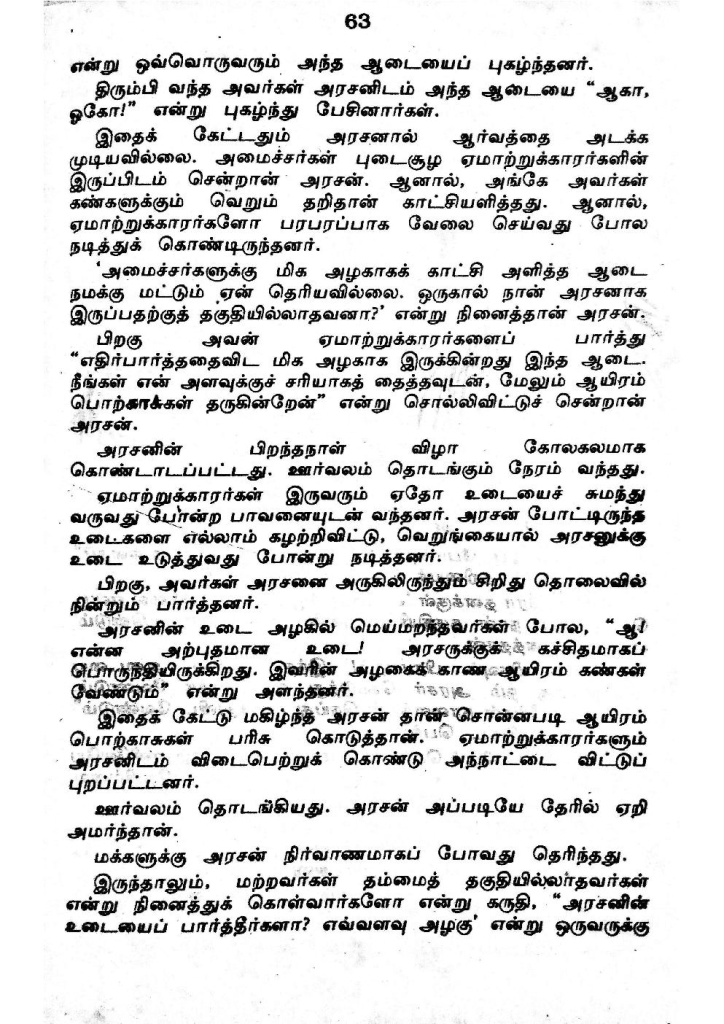 63
என்று ஒவ்வொருவரும் அந்த ஆடையைப் புகழ்ந்தனர்.
திரும்பி வந்த அவர்கள் அரசனிடம் அந்த ஆடையை “ஆகா,
ஓகோ!” என்று புகழ்ந்து பேசினார்கள்.
இதைக் கேட்டதும் அரசனால் ஆர்வத்தை அடக்க
முடியவில்லை. அமைச்சர்கள் புடைசூழ ஏமாற்றுக்காரர்களின்
இருப்பிடம் சென்றான் அரசன். ஆனால், அங்கே அவர்கள்
கண்களுக்கும் வெறும் தறிதான் காட்சியளித்தது. ஆனால்,
ஏமாற்றுக்காரர்களோ பரபரப்பாக வேலை செய்வது போல
நடித்துக் கொண்டிருந்தனர்.
‘அமைச்சர்களுக்கு மிக அழகாகக் காட்சி அளித்த ஆடை
நமக்கு மட்டும் ஏன் தெரியவில்லை. ஒருகால் நான் அரசனாக
இருப்பதற்குத் தகுதியில்லாதவனா?’ என்று நினைத்தான் அரசன்.
பிறகு அவன் ஏமாற்றுக்காரர்களைப் பார்த்து
“எதிர்பார்த்ததைவிட மிக அழகாக இருக்கின்றது இந்த ஆடை.
நீங்கள் என் அளவுக்குச் சரியாகத் தைத்தவுடன், மேலும் ஆயிரம்
பொற்காக்கள் தருகின்றேன்” என்று சொல்லிவிட்டுச் சென்றான்
அரசன்.
அரசனின் பிறந்தநாள் விழா கோலகலமாக
கொண்டாடப்பட்டது. ஊர்வலம் தொடங்கும் நேரம் வந்தது.
ஏமாற்றுக்காரர்கள் இருவரும் ஏதோ உடையைச் சுமந்து
வருவது போன்ற பாவனையுடன் வந்தனர். அரசன் போட்டிருந்த
உடைகளை எல்லாம் கழற்றிவிட்டு, வெறுங்கையால் அரசனுக்கு
உடை உடுத்துவது போன்று நடித்தனர்.
பிறகு, அவர்கள் அரசனை அருகிலிருந்தும் சிறிது தொலைவில்
நின்றும் பார்த்தனர்.
அரசனின் உடை அழகில் மெய்மறந்தவர்கள் போல, “ஆ!
என்ன அற்புதமான உடை! அரசருக்குக் கச்சிதமாகப்
பொருந்தியிருக்கிறது. இவரின் அழகைக் காண ஆயிரம் கண்கள்
வேண்டும்” என்று அளந்தனர்.
இதைக் கேட்டு மகிழ்ந்த அரசன் தான் சொன்னபடி ஆயிரம்
பொற்காசுகள் பரிசு கொடுத்தான். ஏமாற்றுக்காரர்களும்
அரசனிடம் விடைபெற்றுக் கொண்டு அந்நாட்டை விட்டுப்
புறப்பட்டனர்.
ஊர்வலம் தொடங்கியது. அரசன் அப்படியே தேரில் ஏறி
அமர்ந்தான்.
மக்களுக்கு அரசன் நிர்வாணமாகப் போவது தெரிந்தது.
இருந்தாலும், மற்றவர்கள் தம்மைத் தகுதியில்லாதவர்கள்
என்று நினைத்துக் கொள்வார்களோ என்று கருதி, “அரசனின்
உடையைப் பார்த்தீர்களா? எவ்வளவு அழகு’ என்று ஒருவருக்கு